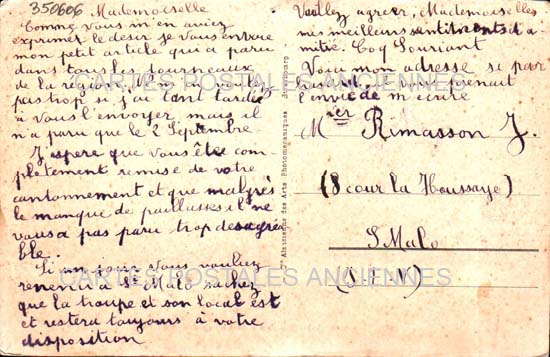 350606 Mademoiselle
Comme vous m'en aviez
exprimer le desir je vous envoie
mon petit article qui a paru
dans tous les journeaux
de la région. Ne m'en voulez
pas trop si j'ai tant tardé
à vous l'envoyer mais il
n'a paru que le 2 Septembre.
J'espere que vous êtes com-
plètement remise de votre
cantonnement et que malgrés
le manque de paillasses il ne
vous a pas paru trop desagréa
ble.
Si un jour vous vouliez
revenir à St Malo sachez
que la troupe et son local est
et restera toujours à votre
disposition
CARTES POSTALES ANCIENNES
CARTES POSTALES ANCIENNES
Ateliers des Arts Photomécaniques Strasbourg
Veuillez agreer, Mademoiselles
mes meilleurs sentiments d'a
mitié. Coq Souriant
Voici mon adresse si par
hasard vous prenait
l'envie de m'écrire
Mr Rimasson J.
(8 cour la Houssaye)
S. Malo
(I. et V.)